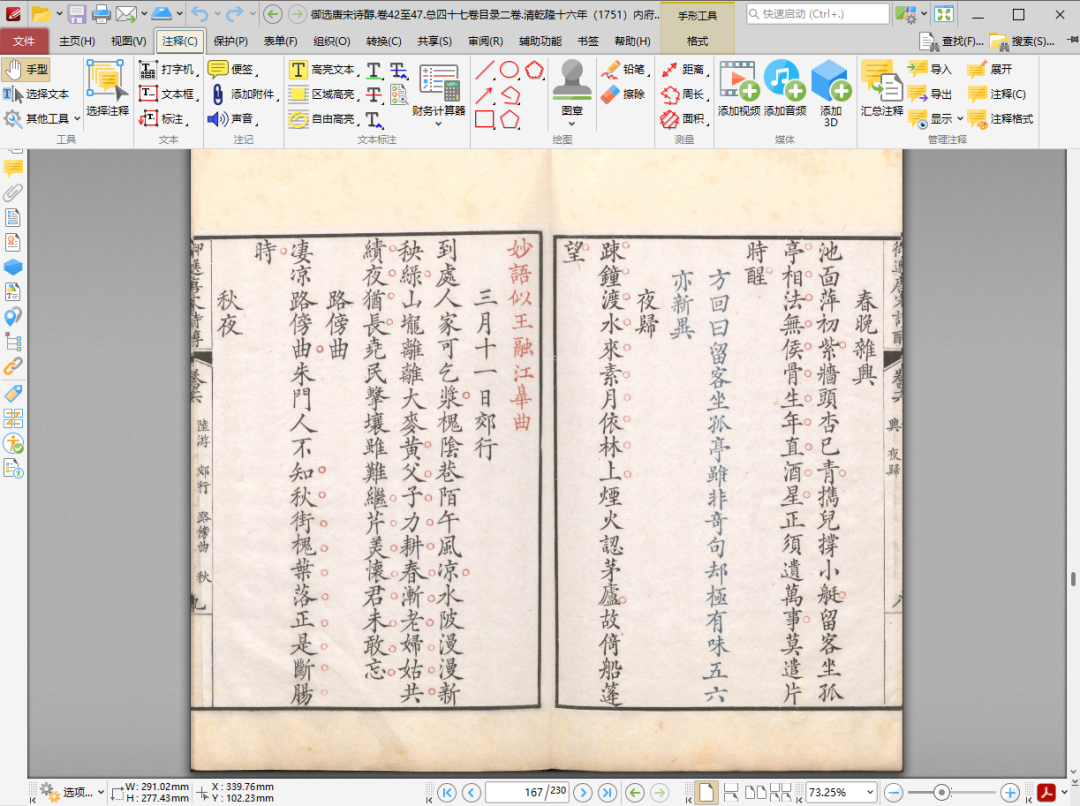 御选唐宋诗醇.卷42至47.总四十七卷目录二卷.清乾隆十六年（1751）内府..
手形工具
快速启动 (Ctrl+.)
文件
主页(H)
视图(V)
注释(C)
保护(P)
表单(F)
组织(O)
转换(C)
共享(S)
审阅(R)
辅助功能
书签
帮助(H)
格式
查找(F)...
搜索(S)...
手型
选择文本
其他工具
选择注释
工具
打字机
文本框
标注
文本
便签
添加附件
声音
注记
高亮文本
区域高亮
自由高亮
财务计算器
文本标注
图章
铅笔
擦除
绘图
距离
周长
面积
测量
添加视频
添加音频
添加
3D
媒体
汇总注释
导入
导出
显示
展开
注释(C)
注释格式
管理注释
春晚雜興
池面萍初紫牆頭杏已青攜兒撐小艇留客坐孤
亭相法無侯骨生年直酒星正須遺萬事莫遣片
時醒
方回曰留客坐孤亭雖非奇句却極有味五六
亦新異
夜歸
踈鐘渡水來素月依林上煙火認茅廬故倚船篷
望
興
夜歸
八
妙語似王融江皋曲
三月十一日郊行
到處人家可乞漿槐陰巷陌午風凉水陂漫漫新
秧綠山壠離離大麥黃父子力耕春漸老婦姑共
績夜猶長堯民擊壤雖難繼芹美懷君未敢忘
路傍曲
凄凉路傍曲朱門人不知秋街槐葉落正是斷腸
時
秋夜
陸游
郊行
路傍曲
秋
九
选项...
W: 291.02mm
H: 277.43mm
X : 339.76mm
Y : 102.23mm
167/230
73.25%